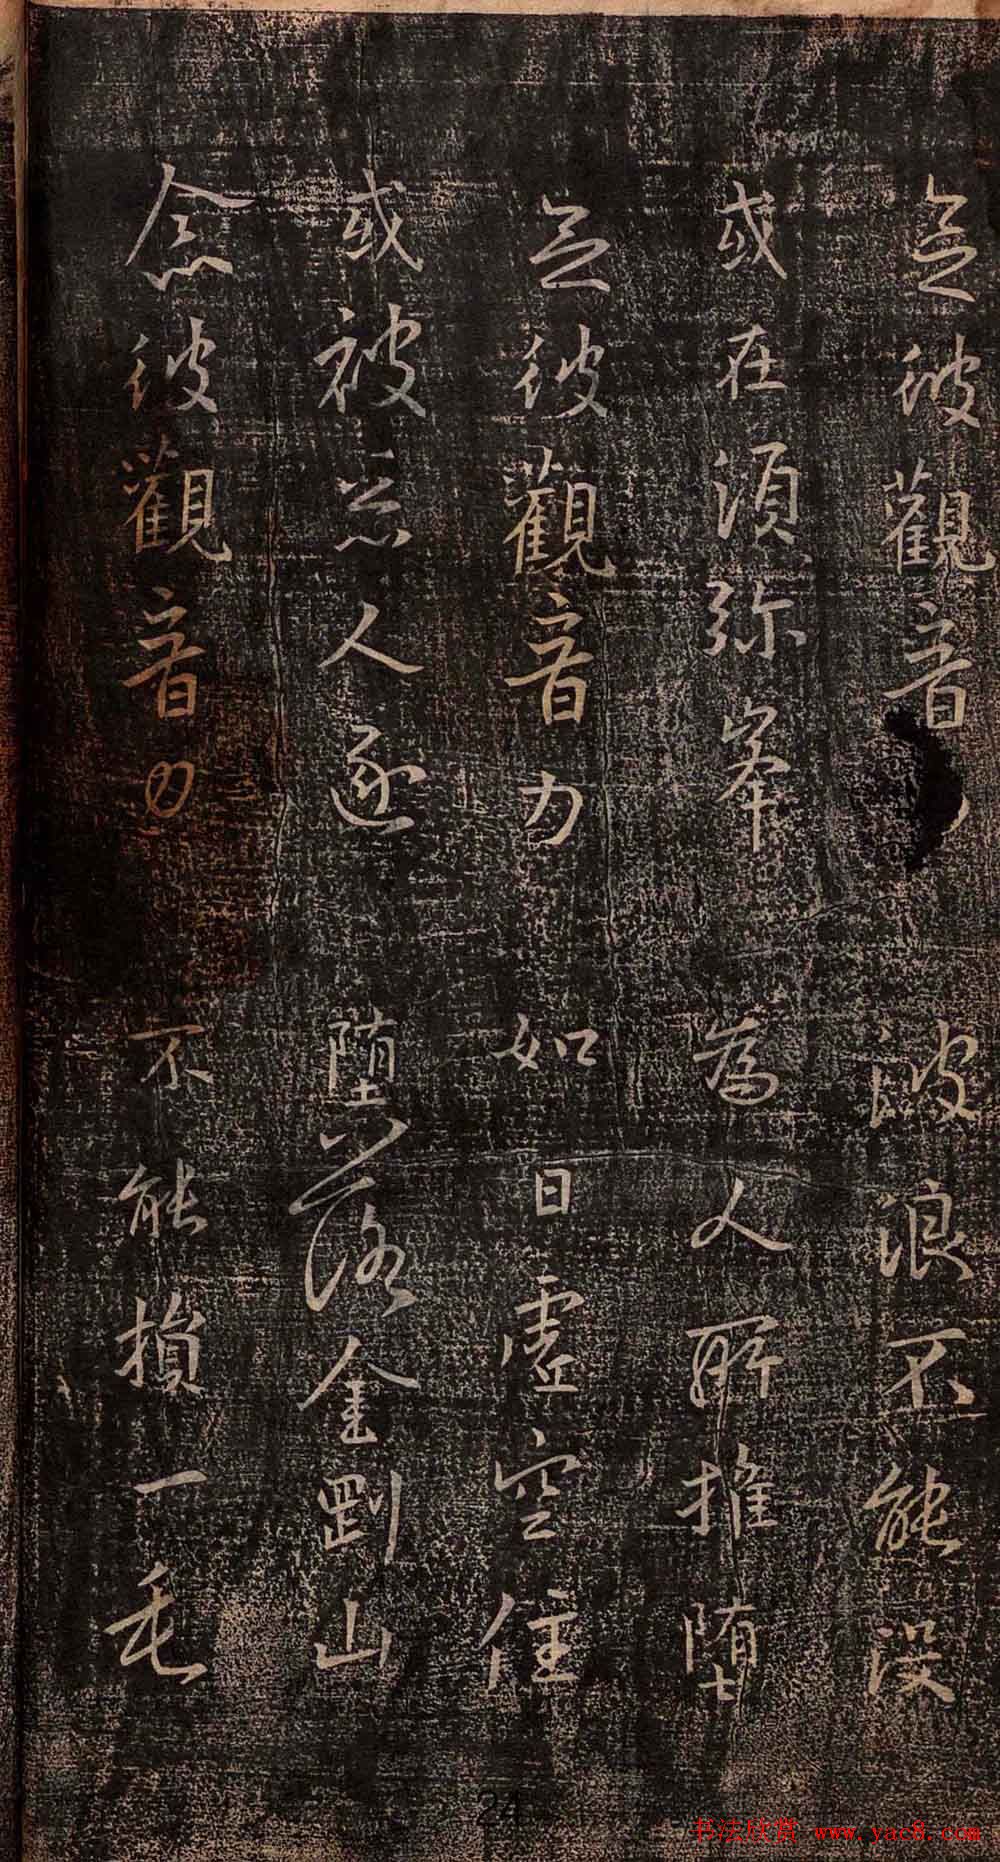 念彼觀音 波浪不能沒
或在須弥峯 為人所推堕
念彼觀音力 如日虚空住
或被惡人逐 堕落金剛山
念彼觀音力 不能損一毛
24
书法欣赏 www.yac8.com